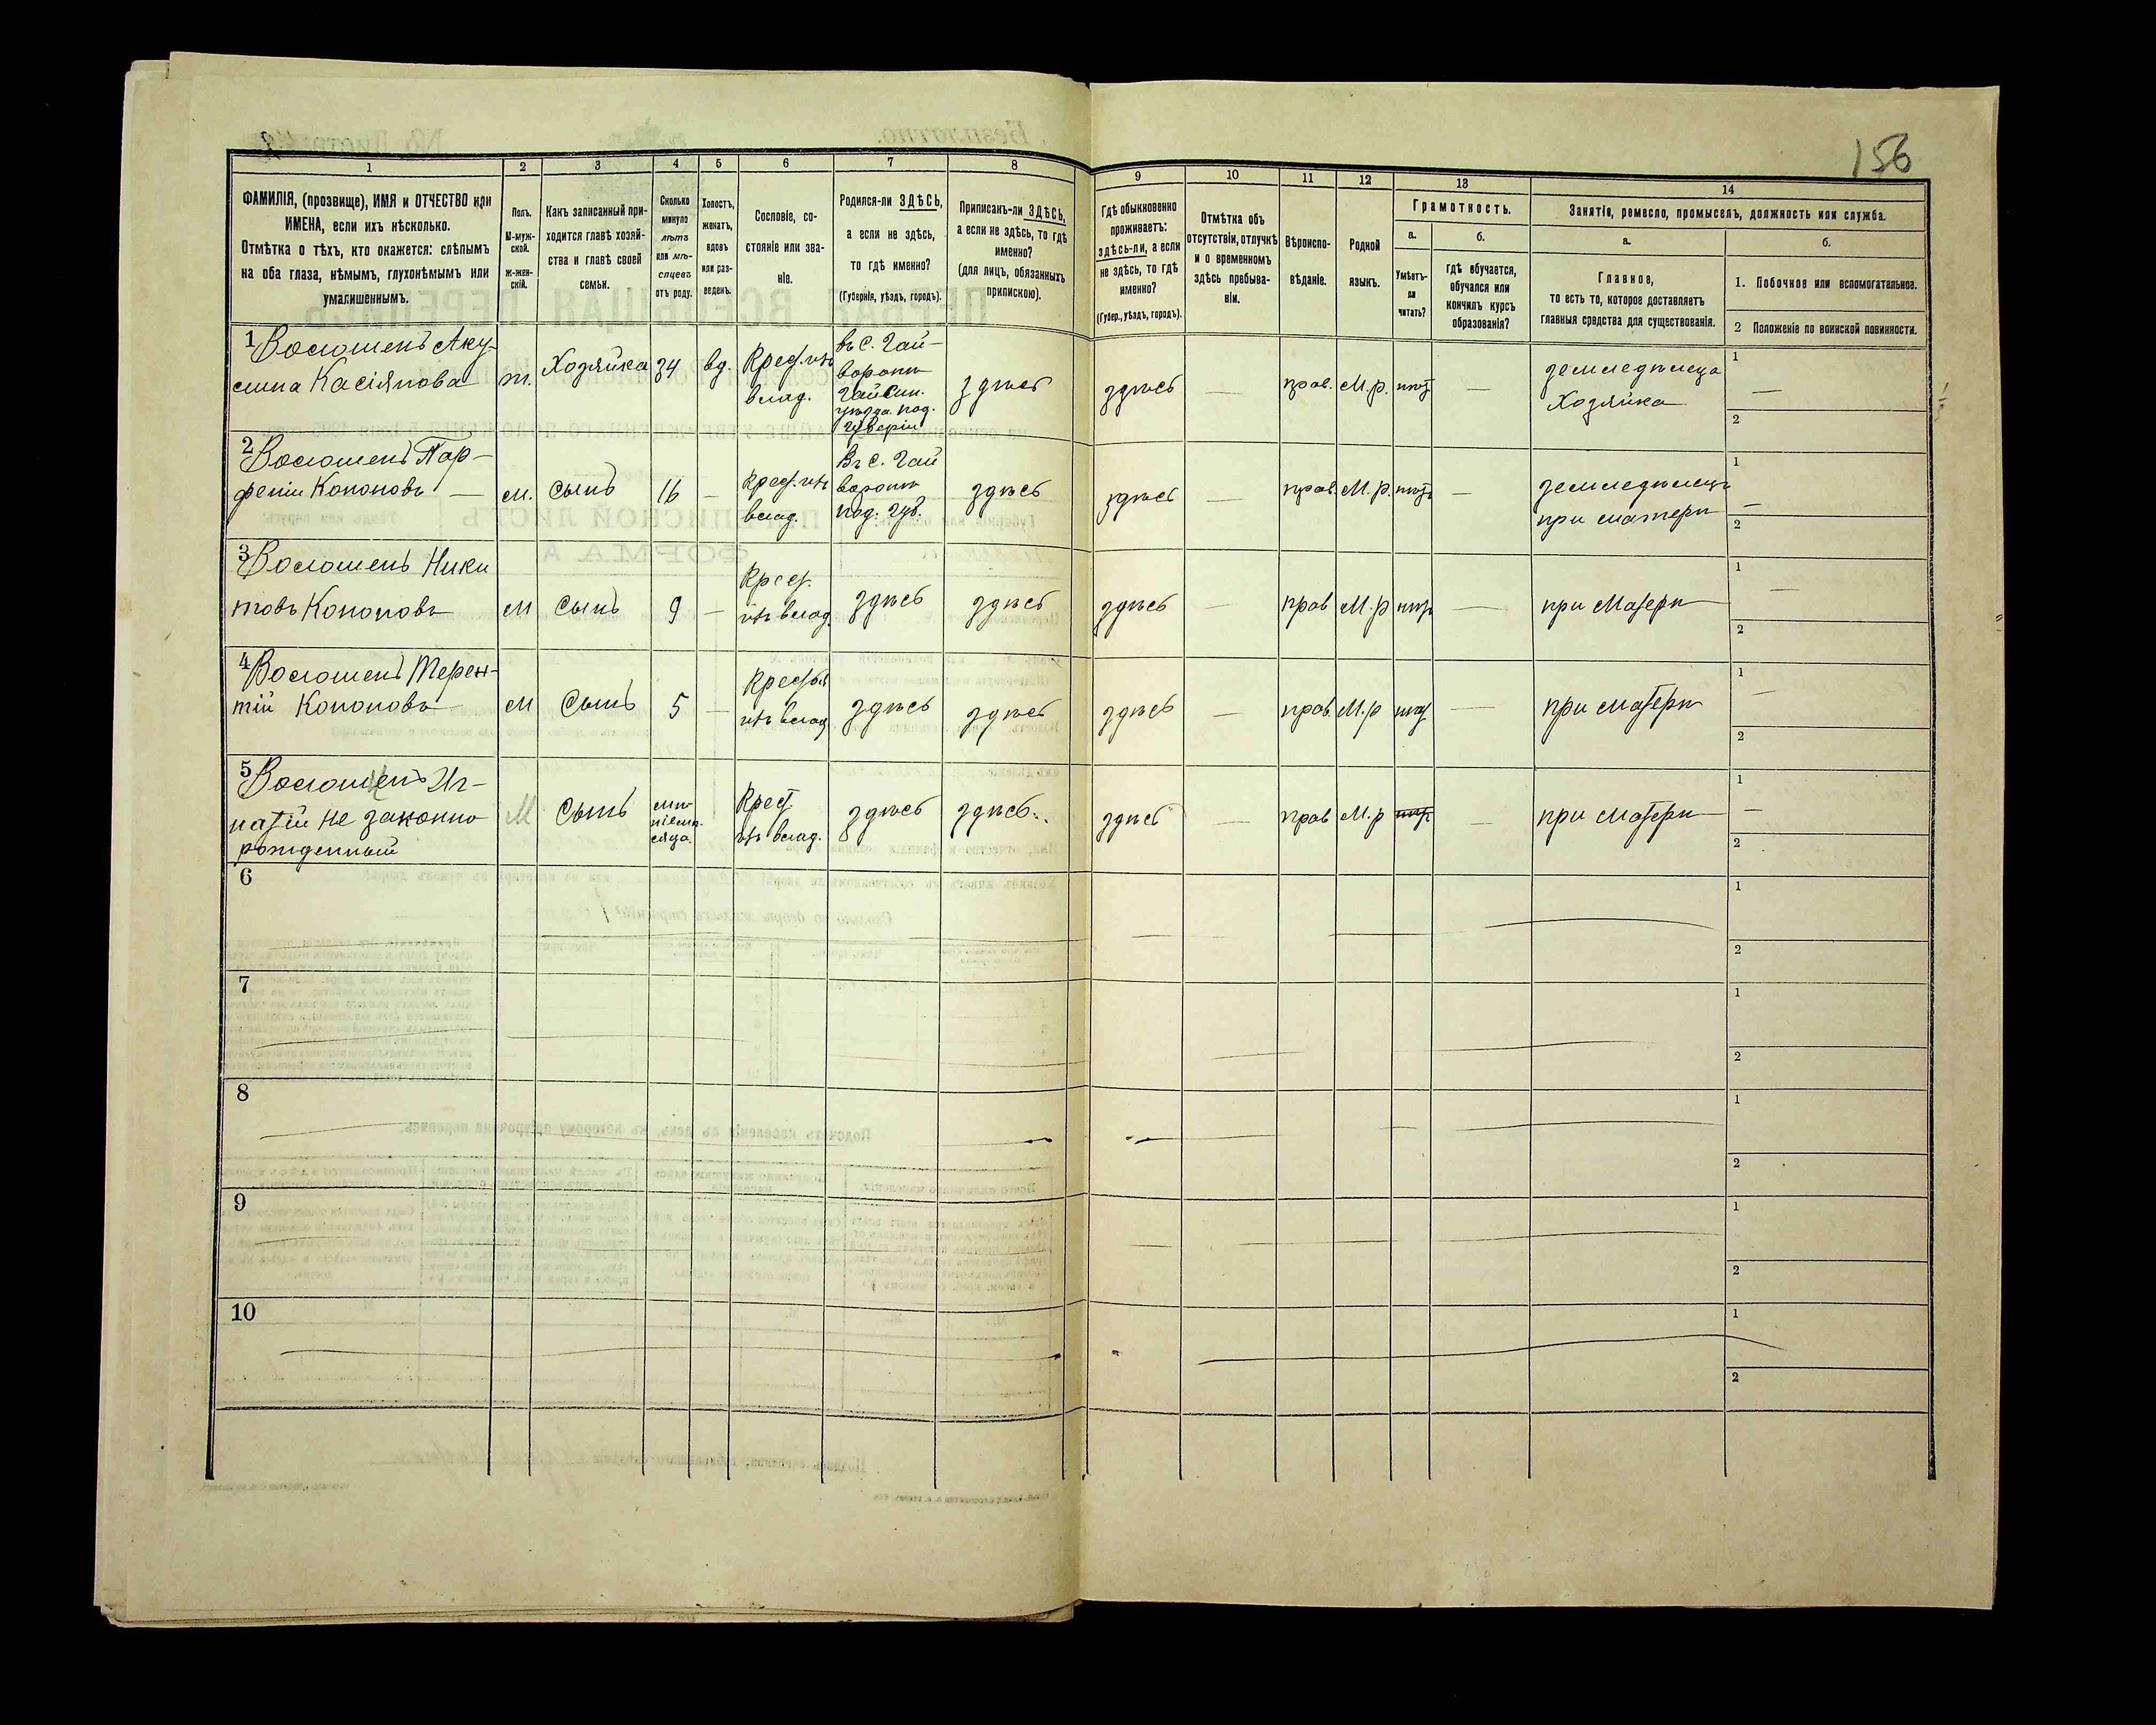 156
1 2 3 4 5 6 7 8 9 10 11 12 13 14
ФАМИЛІЯ, (прозвище), ИМЯ и ОТЧЕСТВО или
ИМЕНА, если ихъ нѣсколько.
Отмѣтка о тѣхъ, кто окажется: слѣпымъ
на оба глаза, нѣмымъ, глухонѣмымъ или
умалишеннымъ.
Полъ.
М-муж-
ской.
ж-жен-
скій.
Какъ записанный при-
ходится главѣ хозяй-
ства и главѣ своей
семьи.
Сколько
минуло
лѣтъ
или мѣ-
сяцевъ
отъ роду.
Холостъ,
женатъ,
вдовъ
или раз-
веденъ.
Сословіе, со-
стояніе или зва-
ніе.
Родился-ли ЗДѢСЬ,
а если не здѣсь,
то гдѣ именно?
(Губернія, уѣздъ, городъ).
Приписанъ-ли ЗДѢСЬ,
а если не здѣсь, то гдѣ
именно?
(для лицъ, обязанныхъ
припискою).
Гдѣ обыкновенно
проживаетъ:
здѣсь-ли, а если
не здѣсь, то гдѣ
именно?
(Губер., уѣздъ, городъ).
Отмѣтка объ
отсутствіи, отлучкѣ
и о временномъ
здѣсь пребыва-
ніи.
Вѣроиспо-
вѣданіе.
Родной
языкъ.
Грамотность.
а.
Умѣетъ-
ли
читать?
б.
гдѣ обучается,
обучался или
кончилъ курсъ
образованія?
Занятіе, ремесло, промыселъ, должность или служба.
а.
Главное,
то есть то, которое доставляетъ
главныя средства для существованія.
б.
1. Побочное или вспомогательное.
2 Положеніе по воинской повинности.
1 Волошенъ Аку-
лина Касіянова
ж.
Хозяйка
34
вд.
Крест. изъ
влад.
въ с. Гай-
воронѣ
Гайсин.
уѣзда. под.
губерніи
здѣсь
здѣсь
—
прав.
М.р.
нѣтъ
—
земледѣлица
Хозяйка
1 —
2
2 Волошенъ Пар-
феній Кононовъ —
м.
сынъ
16
—
Крест. изъ
влад.
Въ с. Гай
воронѣ
под. губ.
здѣсь
здѣсь
—
прав.
М.р.
нѣтъ
—
земледѣлецъ
при матери
1 —
2
3 Волошенъ Ники
товъ Кононовъ
м
сынъ
9
—
Крест.
изъ влад.
здѣсь
здѣсь
здѣсь
—
прав
М.р
нѣтъ
—
при Матери
1 —
2
4 Волошенъ Терен-
тій Кононовъ
м
Сынъ
5
—
Крестья
изъ влад
здѣсь
здѣсь
здѣсь
—
прав.
М.р
нѣт
—
при матери
1 —
2
5 Волошенъ Иг-
натій не законно
рожденный
М
Сынъ
Крест.
изъ влад.
здѣсь
здѣсь
здѣсь
—
прав
М.р
нѣт
—
при матери
1 —
2
6
1
2
7
1
2
8
1
2
9
1
2
10
1
2